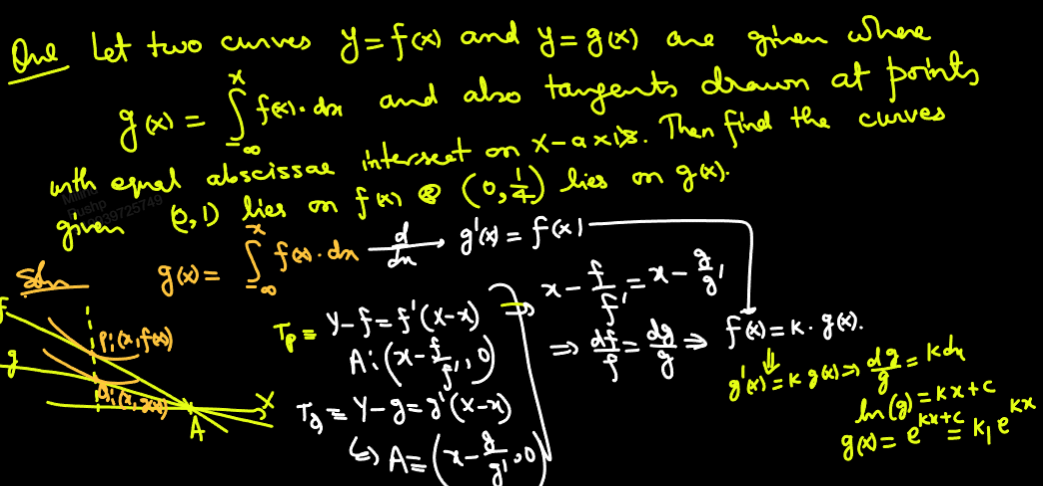 Que Let two curves y = f(x) and y = g(x) are given where
g(x) = ∫_{-∞}^{x} f(x)·dx and also tangents drawn at points
with equal abscissae intersect on x-axis. Then find the curves
given (0,1) lies on f(x) & (0, 1/4) lies on g(x).
Soln g(x) = ∫_{-∞}^{x} f(x)·dx d/dx → g'(x) = f(x)
f
g
P:(x, f(x))
Q:(x, g(x))
A
X
T_P ≡ Y-f = f'(X-x)
A:(x - f/f', 0)
T_g ≡ Y-g = g'(X-x)
↳ A ≡ (x - g/g', 0)
⇒ x - f/f' = x - g/g'
⇒ df/f = dg/g ⇒ f(x) = K·g(x).
g'(x) = K g(x) ⇒ dg/g = K dx
ln(g) = Kx + C
g(x) = e^{Kx+C} = K₁ e^{Kx}